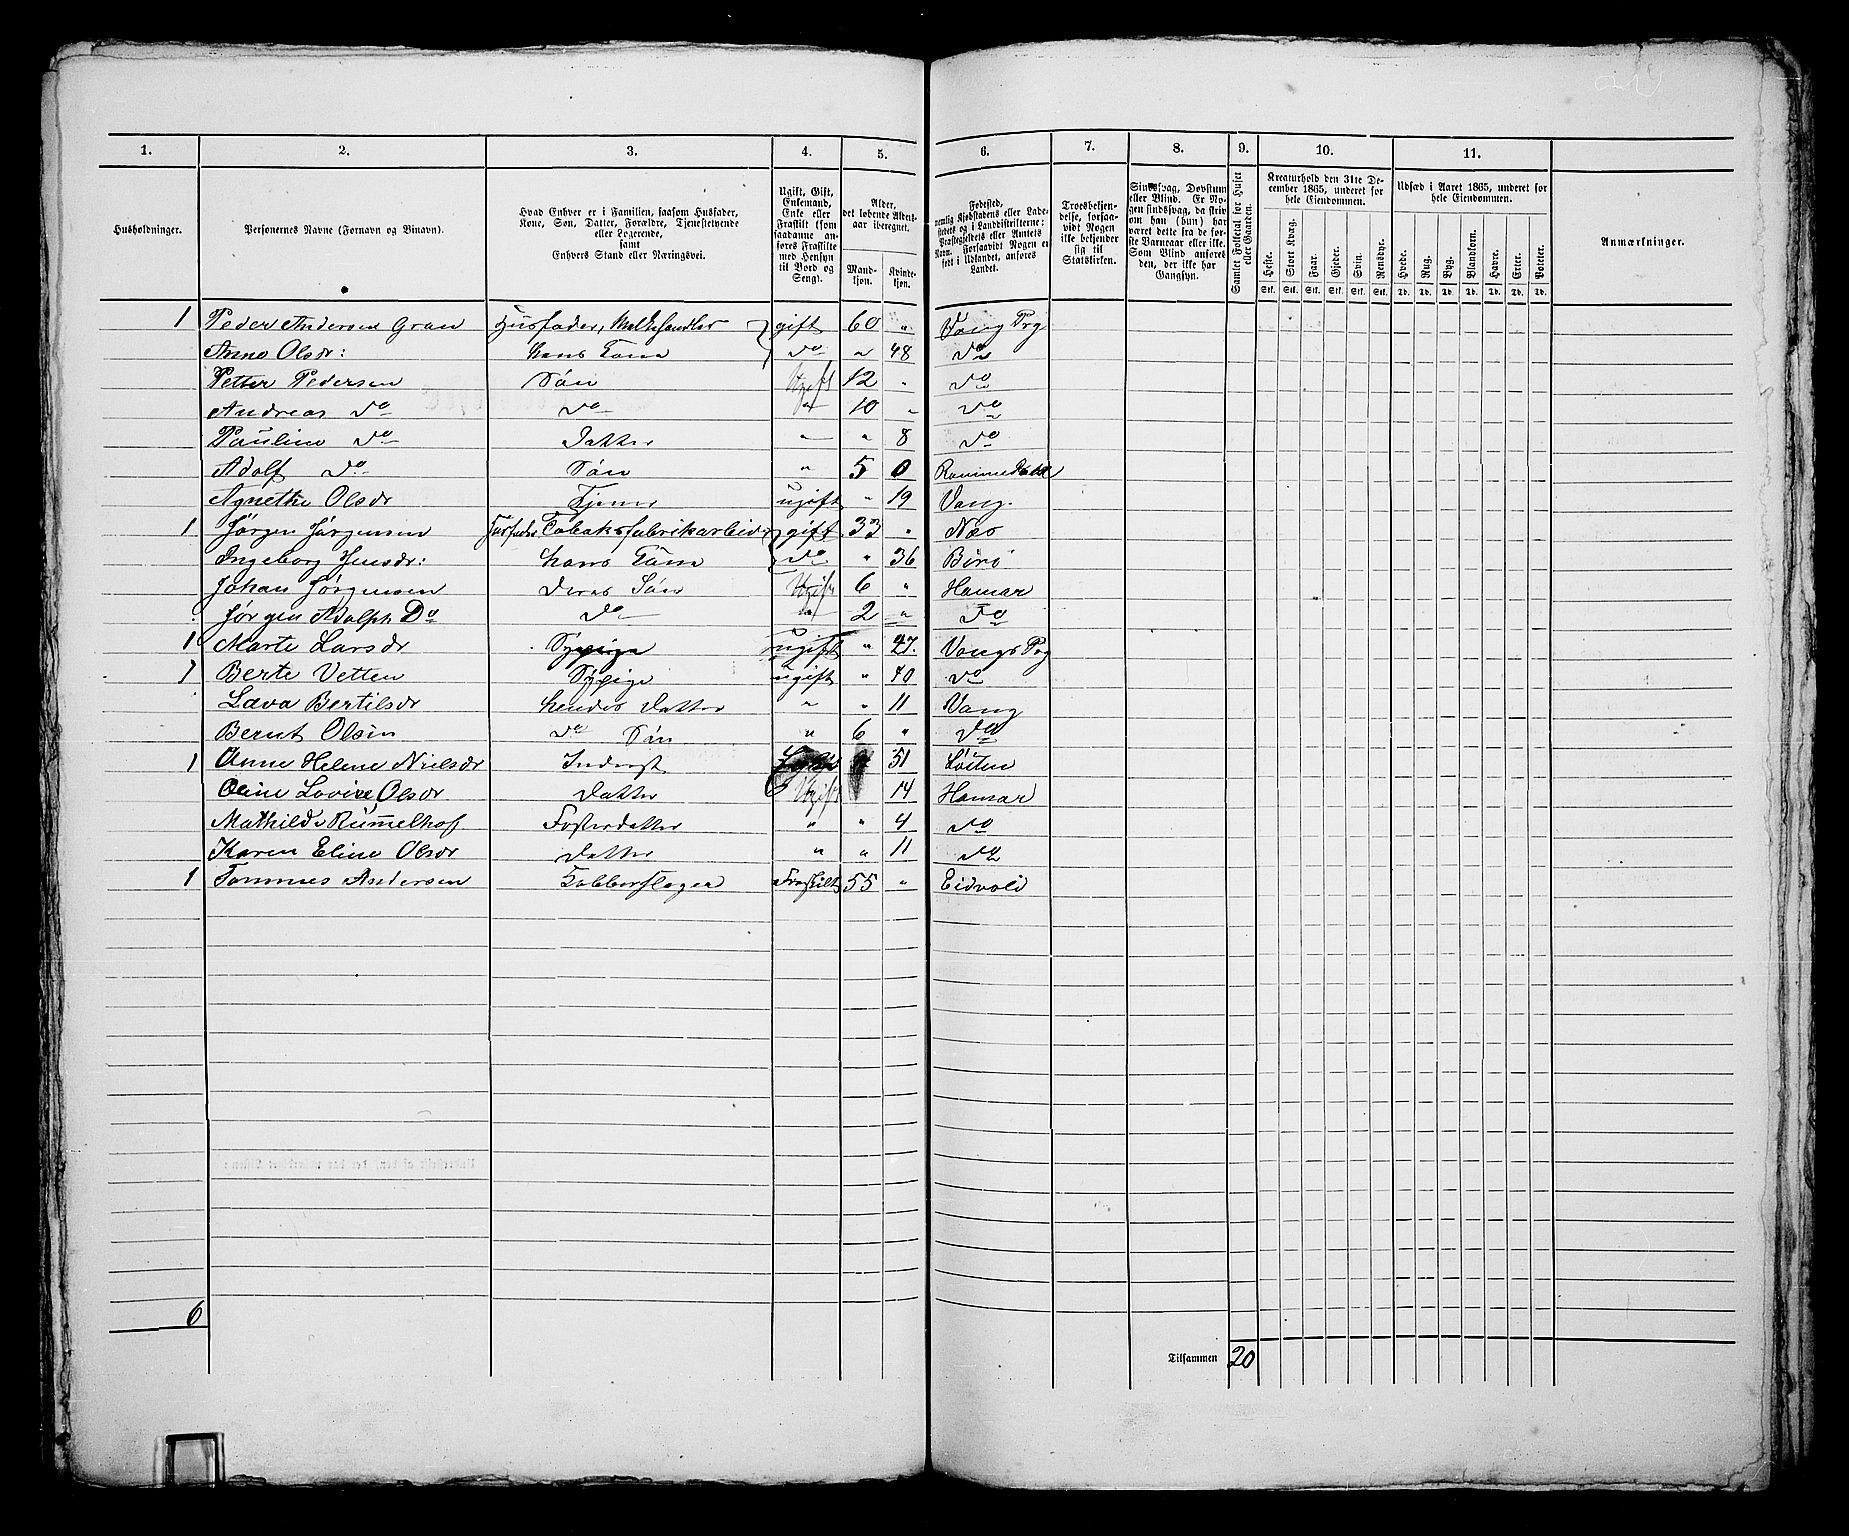 1. 2. 3. 4. 5. 6. 7. 8. 9. 10. 11.
Husholdninger.
Personernes Navne (Fornavn og Binavn).
Hvad Enhver er i Familien, saasom Husfader,
Kone, Søn, Datter, Forældre, Tjenestetyende
eller Logerende,
samt
Enhvers Stand eller Næringsvei.
Ugift, Gift,
Enkemand,
Enke eller
Fraskilt (som
saadanne an-
føres Fraskilte
med Hensyn
til Bord og
Seng).
Alder,
det løbende Alders-
aar iberegnet.
Mand-
kjøn.
Kvinde-
kjøn.
Fødested,
nemlig Kjøbstadens eller Lade-
stedets og i Landdistrikterne:
Præstegjeldets eller Annexets
Navn. Forsaavidt Nogen er
født i Udlandet, anføres
Landet.
Troesbekjen-
delse, forsaa-
vidt Nogen
ikke bekjender
sig til
Statskirken.
Sindssvag, Døvstum
eller Blind. Er No-
gen sindssvag, da skriv
om han (hun) har
været dette fra de før-
ste Barneaar eller ikke.
Som Blind anføres
den, der ikke har
Gangsyn.
Samlet Folketal for Huset
eller Gaarden.
Kreaturhold den 31te De-
cember 1865, underet for
hele Eiendommen.
Heste. Stort Kvæg. Faar. Gjeder. Svin. Rensdyr.
Stk. Stk. Stk. Stk. Stk. Stk.
Udsæd i Aaret 1865, underet for
hele Eiendommen.
Hvede. Rug. Byg. Blandkorn. Havre. Erter. Poteter.
Td. Td. Td. Td. Td. Td. Td.
Anmærkninger.
1 Peder Andersen Gran Husfader, Melkehandler gift 60 „ Vang Prg
Anne Olsdr: hans Kone do „ 48 do
Petter Pedersen Søn Ugift 12 „ do
Andreas do do „ 10 „ do
Pauline do Datter „ „ 8 do
Adolf do Søn „ 5 0
Agnethe Olsdr Tjener ugift „ 19 Vang.
1 Jørgen Jørgensen Husfader Tobaksfabrikarbeider gift 33 „ Næs
Ingeborg Jensdr: hans Kone do „ 36
Johan Jørgensen deres Søn Ugift 6 „ Hamar
Jørgen Adolph Do do „ 2 „ do
1 Marte Larsdr Sypige ugift „ 27. Vangs Prg
1 Berte Vetten Sypige ugift „ 40 do
Læva Bertilsdr hendes Datter „ „ 11 Vang
Bernt Olsen do Søn „ 6 „ do
1 Anne Helene Nielsdr Inderst 51 Løiten
Oline Lovise Olsdr Datter Ugift 14 Hamar
Mathilde Rümmelhof Fosterdatter „ „ 4 do
Karen Eline Olsdr Datter „ „ 11 do
1 Tommes Andersen Kobberslager Fraskilt 55 „ Eidvold
6
Tilsammen 20